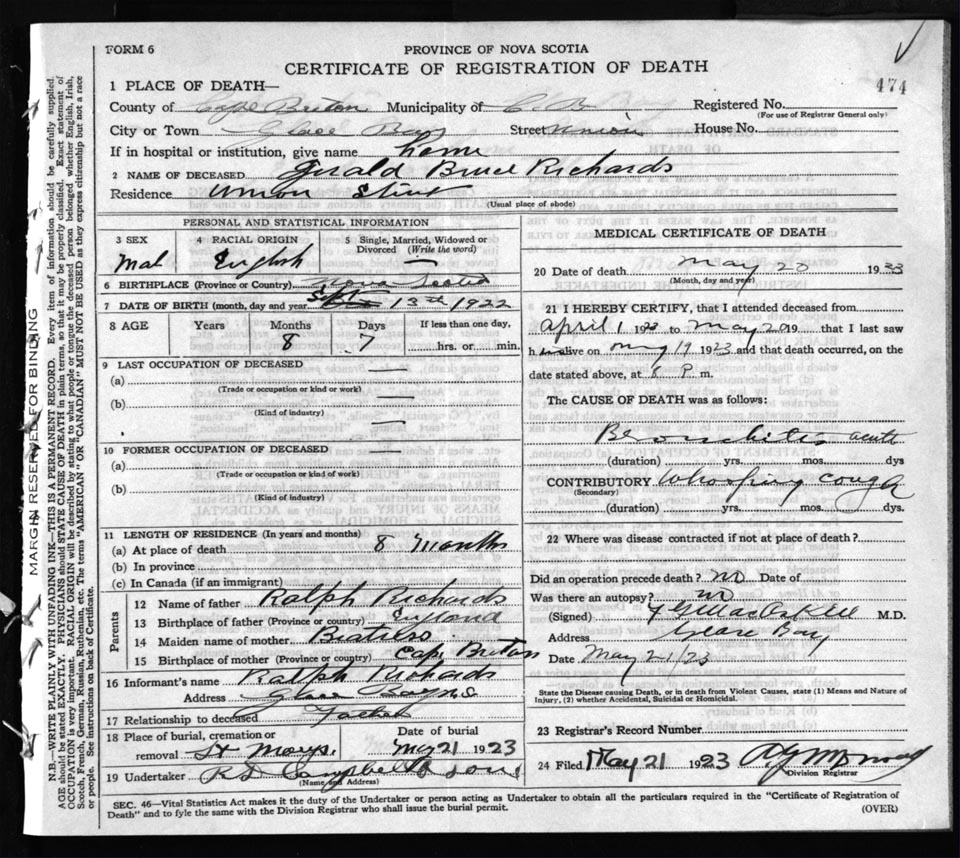 FORM 6
PROVINCE OF NOVA SCOTIA
CERTIFICATE OF REGISTRATION OF DEATH
474
1 PLACE OF DEATH—
County of Cape Breton Municipality of C. B. Registered No.
(For use of Registrar General only)
City or Town Glace Bay Street Union House No.
If in hospital or institution, give name home
2 NAME OF DECEASED Gerald Bruce Richards
Residence Union Street
(Usual place of abode)
PERSONAL AND STATISTICAL INFORMATION
3 SEX 4 RACIAL ORIGIN 5 Single, Married, Widowed or Divorced (Write the word)
Mal English —
6 BIRTHPLACE (Province or Country) Nova Scotia
7 DATE OF BIRTH (month, day and year) Sept 13th 1922
8 AGE Years Months Days If less than one day,
8 7 hrs. or min.
9 LAST OCCUPATION OF DECEASED —
(a)
(Trade or occupation or kind or work)
(b) —
(Kind of industry)
—
10 FORMER OCCUPATION OF DECEASED —
(a)
(Trade or occupation or kind of work)
(b)
(Kind of industry)
11 LENGTH OF RESIDENCE (In years and months)
(a) At place of death 8 months
(b) In province
(c) In Canada (if an immigrant)
Parents
12 Name of father Ralph Richards
13 Birthplace of father (Province or country) England
14 Maiden name of mother
15 Birthplace of mother (Province or country) Cape Breton
16 Informant's name Ralph Richards
Address Glace Bay NS
17 Relationship to deceased Father
18 Place of burial, cremation or Date of burial
removal St Marys. May 21 1923
19 Undertaker Campbell & Sons
(Name and Address)
MEDICAL CERTIFICATE OF DEATH
20 Date of death May 20 1923
(Month, day and year)
21 I HEREBY CERTIFY, that I attended deceased from
April 1 1923 to May 20 19 that I last saw
h im alive on May 19 1923 and that death occurred, on the
date stated above, at 6 P. m.
The CAUSE OF DEATH was as follows:
Bronchitis acute
(duration) yrs. mos. dys
CONTRIBUTORY Whooping cough
(Secondary)
(duration) yrs. mos. dys.
22 Where was disease contracted if not at place of death?
Did an operation precede death? no Date of
Was there an autopsy? no
(Signed) M.D.
Address Glace Bay
Date May 21/23
State the Disease causing Death, or in death from Violent Causes, state (1) Means and Nature of
Injury, (2) whether Accidental, Suicidal or Homicidal.
23 Registrar's Record Number
24 Filed May 21 1923
Division Registrar
SEC. 46—Vital Statistics Act makes it the duty of the Undertaker or person acting as Undertaker to obtain all the particulars required in the "Certificate of Registration of
Death" and to fyle the same with the Division Registrar who shall issue the burial permit.
(OVER)
MARGIN RESERVED FOR BINDING
N.B.—WRITE PLAINLY WITH UNFADING INK—THIS IS A PERMANENT RECORD. Every item of information should be carefully supplied.
AGE should be stated EXACTLY. PHYSICIANS should STATE CAUSE OF DEATH in plain terms, so that it may be properly classified. Exact statement of
OCCUPATION is very important. RACIAL ORIGIN will be described by stating to what people or tongue the deceased person belonged whether English, Irish,
Scotch, French, German, Russian, Ruthenian, etc. The terms "AMERICAN" OR "CANADIAN" MUST NOT BE USED as they express citizenship but not a race
or people. See instructions on back of Certificate.